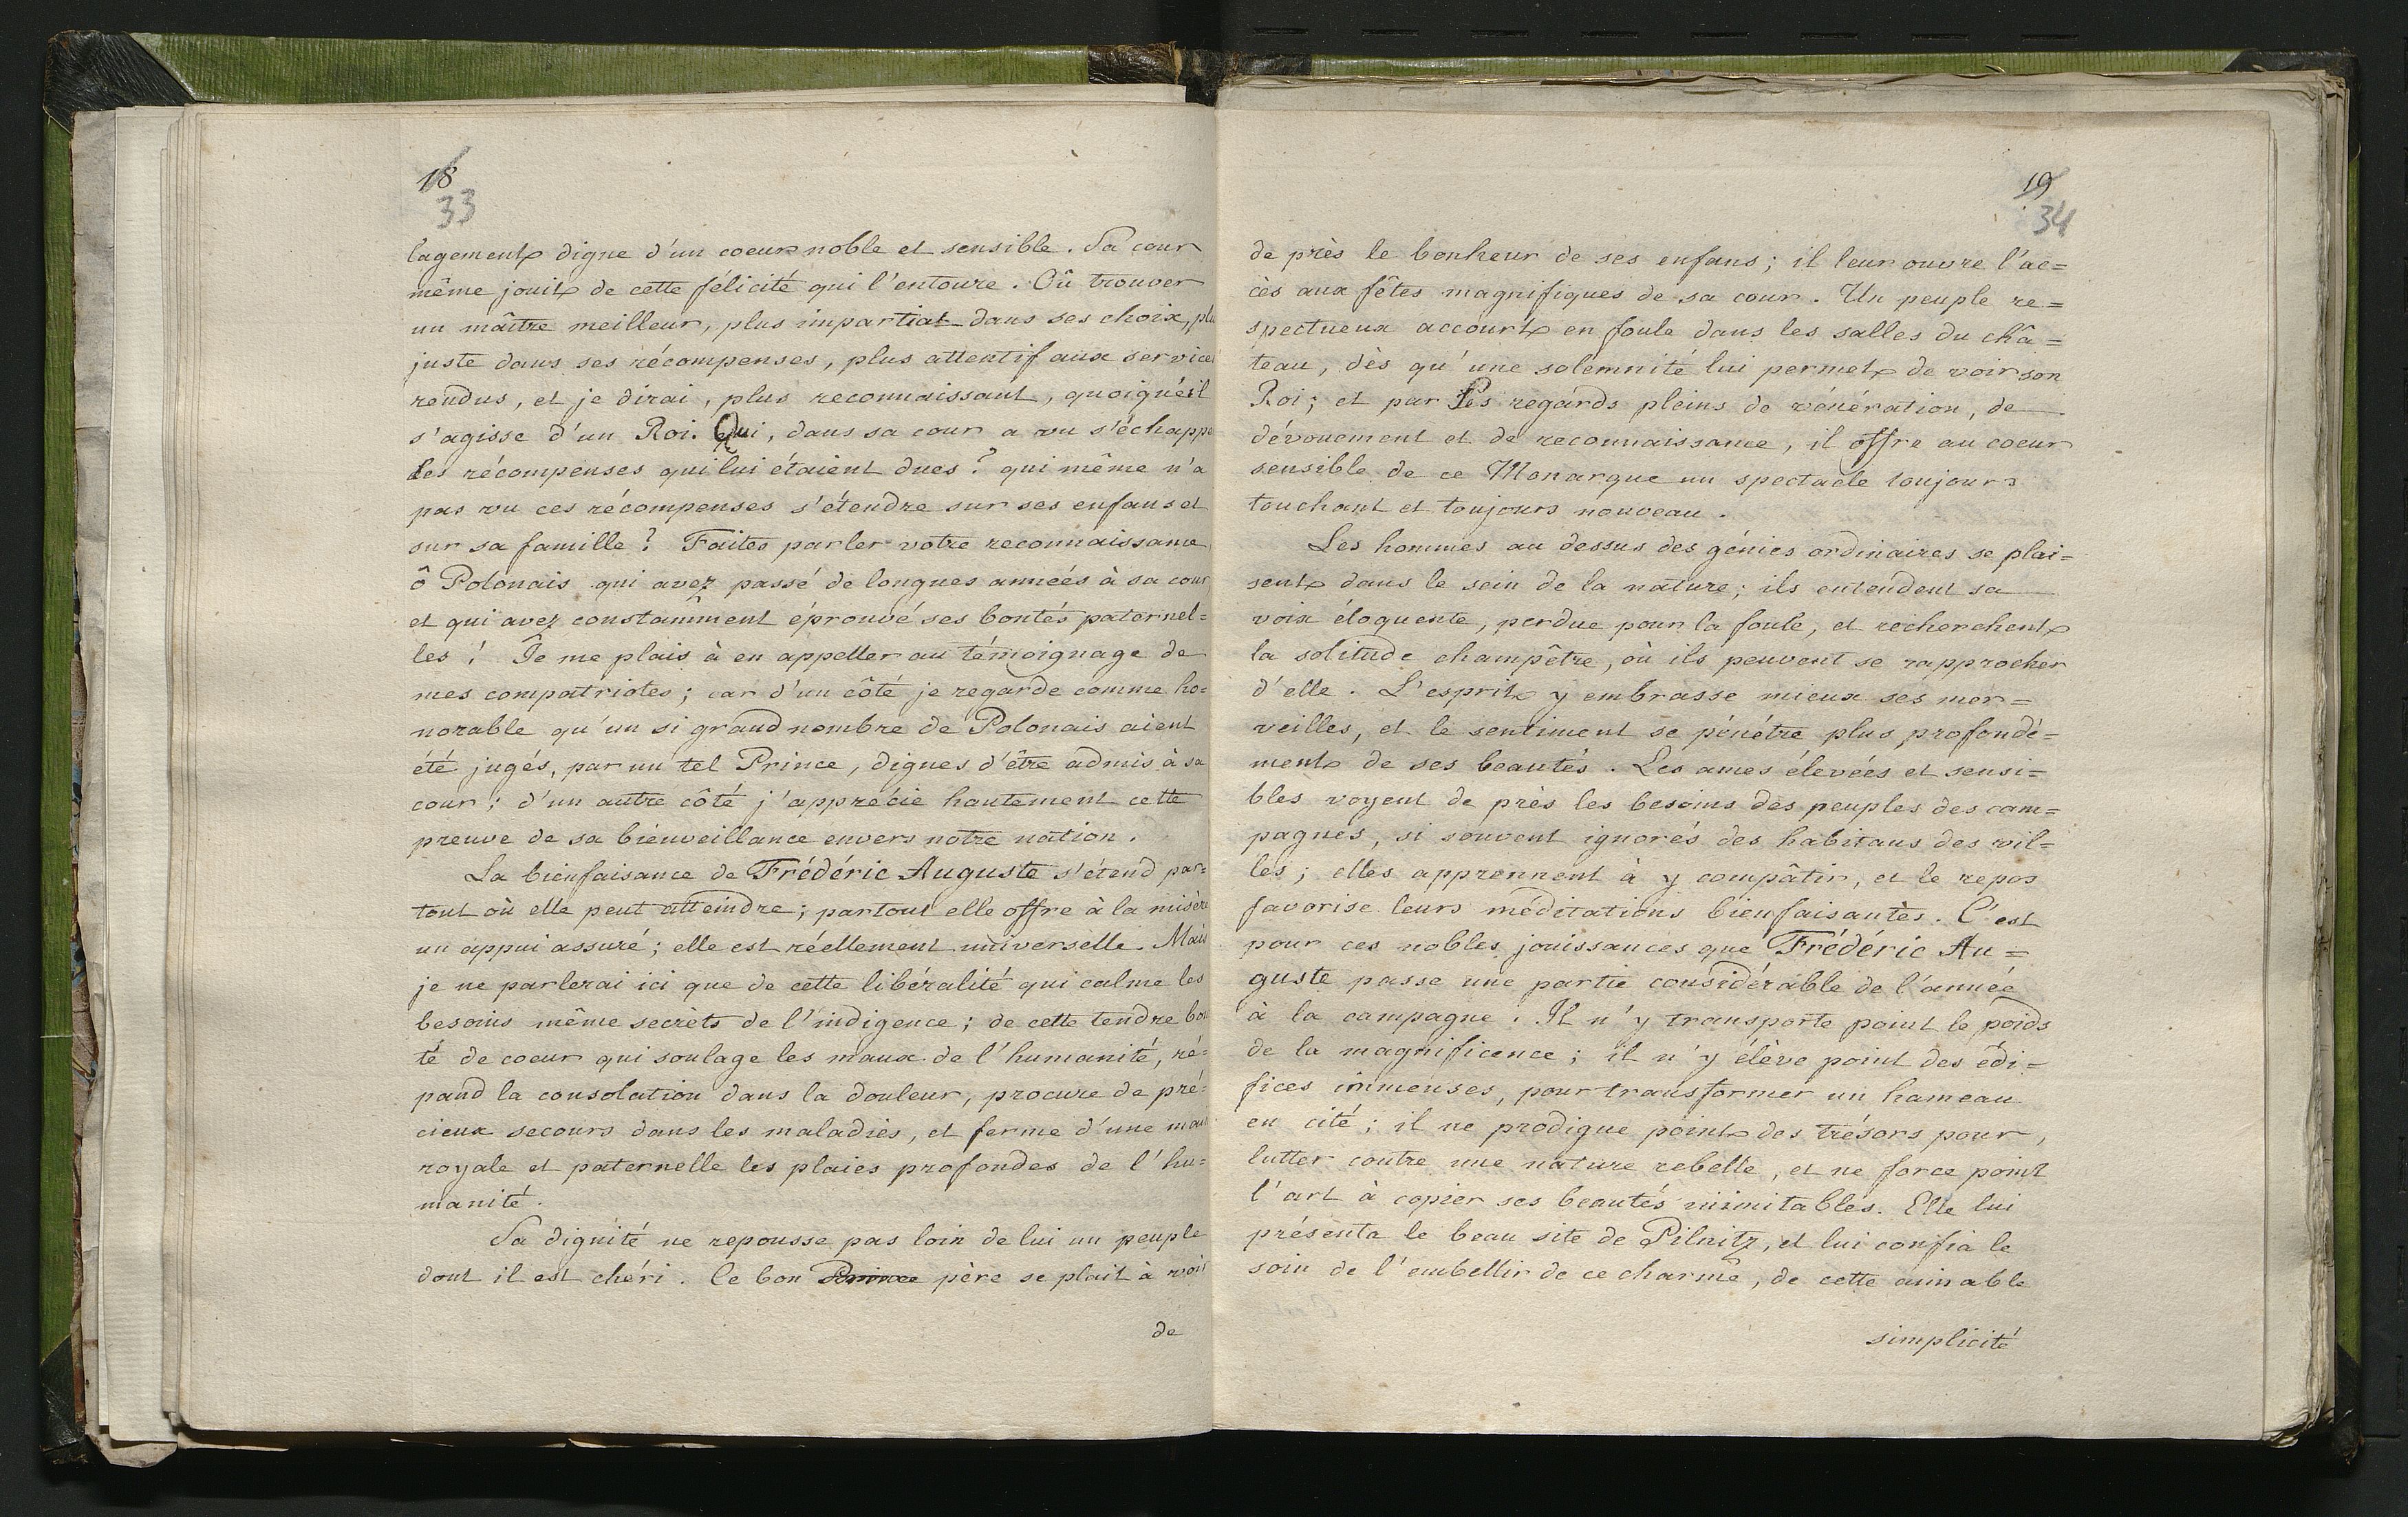 18
33
lagement digne d'un coeur noble et sensible. Sa cour
même jouit de cette félicité qui l'entoure. Où trouver
un maître meilleur, plus impartial dans ses choix, plu
juste dans ses récompenses, plus attentif aux service
rendus, et je dirai, plus reconnaissant, quoiqu'il
s'agisse d'un Roi. Qui, dans sa cour a vu s'échappe
les récompenses qui lui étaient dues? qui même n'a
pas vu ces récompenses s'étendre sur ses enfans et
sur sa famille? Faites parler votre reconnaissance
ô Polonais qui avez passé de longues années à sa cour
et qui avez constamment éprouvé ses bontés paternel=
les! Je me plais à en appeller au témoignage de
mes compatriotes; car d'un côté je regarde comme ho=
norable qu'un si grand nombre de Polonais aient
été jugés, par un tel Prince, dignes d'être admis à sa
cour; d'un autre côté j'apprécie hautement cette
preuve de sa bienveillance envers notre nation.
La bienfaisance de Frédéric Auguste s'étend par=
tout où elle peut atteindre; partout elle offre à la misère
un appui assuré; elle est réellement universelle. Mais
je ne parlerai ici que de cette libéralité qui calme les
besoins même secrèts de l'indigence; de cette tendre bon
té de coeur qui soulage les maux de l'humanité, ré=
pand la consolation dans la douleur, procure de pré=
cieux secours dans les maladies, et ferme d'une main
royale et paternelle les plaies profondes de l'hu=
manité.
Sa dignité ne repousse pas loin de lui un peuple
dont il est chéri. Ce bon Prince père se plait à voir
de
19
34
de près le bonheur de ses enfans; il leur ouvre l'ac=
cès aux fêtes magnifiques de sa cour. Un peuple re=
spectueux accourt en foule dans les salles du châ=
teau, dès qu'une solemnité lui permet de voir son
Roi; et par ses regards pleins de vénération, de
dévouement et de reconnaissance, il offre au coeur
sensible de ce Monarque un spectacle toujours
touchant et toujours nouveau.
Les hommes au dessus des génies ordinaires se plai=
sent dans le sein de la nature; ils entendent sa
voix éloquente, perdue pour la foule, et recherchent
la solitude champêtre, où ils peuvent se rapprocher
d'elle. L'esprit y embrasse mieux ses mer=
veilles, et le sentiment se pénétre plus profondé=
ment de ses beautés. Les ames élevées et sensi=
bles voyent de près les besoins des peuples des cam=
pagnes, si souvent ignorés des habitans des vil=
les; elles apprennent à y compâtir, et le repos
favorise leurs méditations bienfaisantes. C'est
pour ces nobles jouissances que Frédéric Au=
guste passe une partie considérable de l'année
à la campagne. Il n'y transporte point le poids
de la magnificence; il n'y élève point des édi=
fices immenses, pour transformer un hameau
en cité; il ne prodigue point des trésors pour,
lutter contre une nature rebelle, et ne force point
l'art à copier ses beautés inimitables. Elle lui
présenta le beau site de Pilnitz, et lui confia le
soin de l'embellir de ce charme, de cette aimable
simplicité